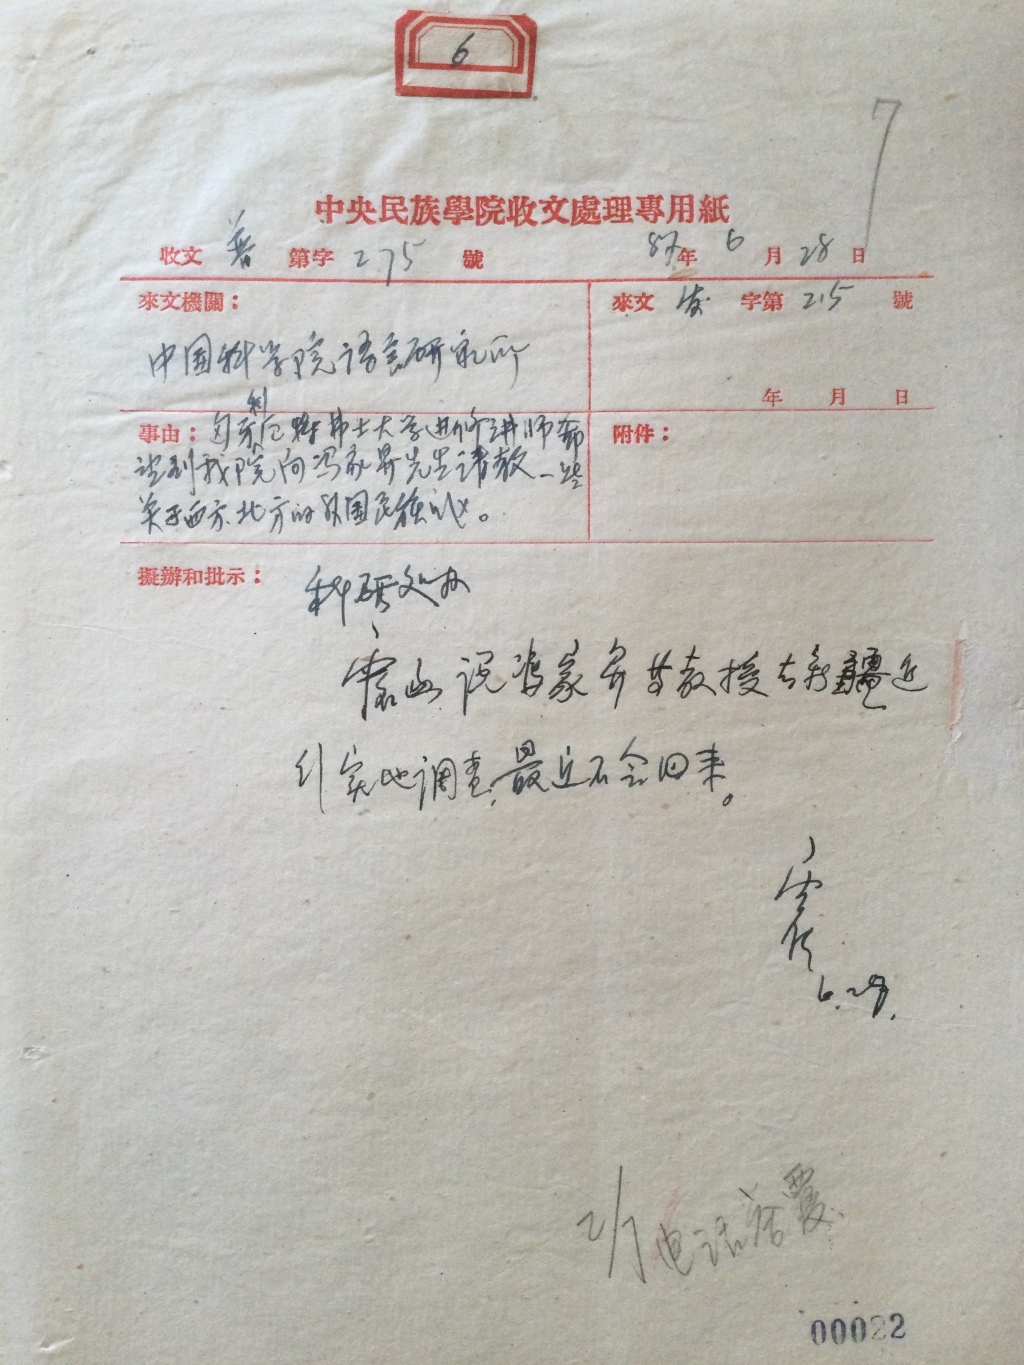 6
7
中央民族學院收文處理專用紙
收文 普 第字 275 號 57年 6月 28日
來文機關： 來文 发 字第 215 號
中国科学院语言研究所
年 月 日
事由：匈牙利厄特弗士大学进修讲师希
望到我院向冯家昇先生请教一些
关于西方、北方的外国民族的
附件：
擬辦和批示：
科研处办
说冯家昇教授去新疆进
行实地调查，最近不会回来。
6.29.
2/7 电话答覆.
00022